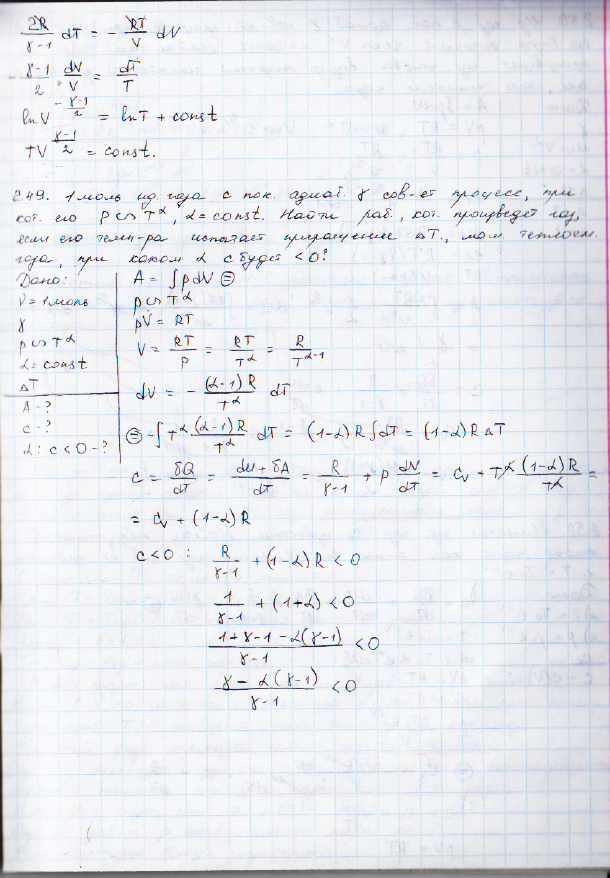 2R/(γ-1) dT = - RT/V dV
- (γ-1)/2 · dV/V = dT/T
ln V^(-(γ-1)/2) = ln T + const
TV^((γ-1)/2) = const.
2.49. 1 моль ид. газа с пок. адиаб. γ сов-ет процесс, при
кот. его p ∽ T^α, α = const. Найти раб., кот. произведет газ,
если его темп-ра испытает приращение ΔT., мол теплоем.
газа, при каком α c будет < 0?
Дано:
ν = 1 моль
γ
p ∽ T^α
α = const
ΔT
A - ?
c - ?
α: c < 0 - ?
A = ∫pdV ⊜
p ∽ T^α
pV = RT
V = RT/p = RT/T^α = R/T^(α-1)
dV = - (α-1)R/T^α dT
⊜ -∫T^α (α-1)R/T^α dT = (1-α)R∫dT = (1-α)RΔT
c = δQ/dT = (dU + δA)/dT = R/(γ-1) + p dV/dT = Cv + T^α (1-α)R/T^α =
= Cv + (1-α)R
c < 0 : R/(γ-1) + (1-α)R < 0
1/(γ-1) + (1+α) < 0
(1+γ-1-α(γ-1))/(γ-1) < 0
(γ - α(γ-1))/(γ-1) < 0